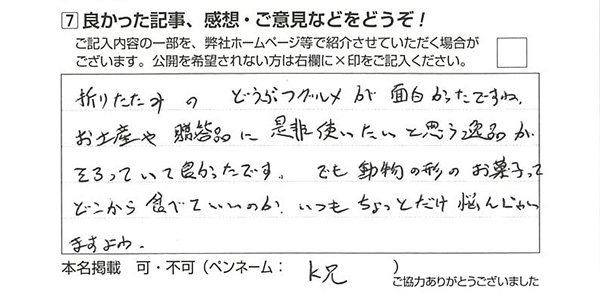 7 良かった記事、感想・ご意見などをどうぞ！
ご記入内容の一部を、弊社ホームページ等で紹介させていただく場合が
ございます。公開を希望されない方は右欄に×印をご記入ください。
折りたたみの どうぶつグルメが 面白かったですね。
お土産や 贈答品に 是非使いたいと思う逸品が
そろっていて良かったです。 でも 動物の形の お菓子って
どこから 食べていいのか、いつも ちょっとだけ 悩んじゃい
ますよね。
本名掲載 可・不可（ペンネーム： K兄 ）
ご協力ありがとうございました